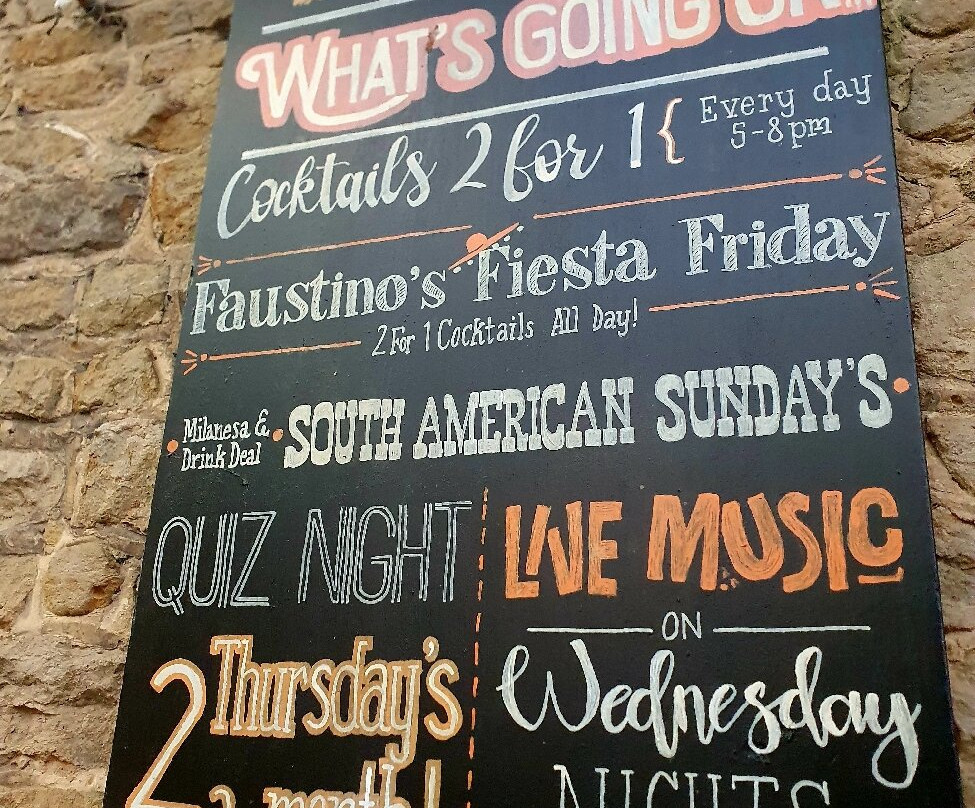 WHAT'S GOING ON...
Cocktails 2 for 1 { Every day
5-8pm
Faustino's Fiesta Friday
2 For 1 Cocktails All Day!
Milanesa &
Drink Deal
SOUTH AMERICAN SUNDAY'S
QUIZ NIGHT
2 Thursday's
a month!
LIVE MUSIC
ON
Wednesday
NIGHTS